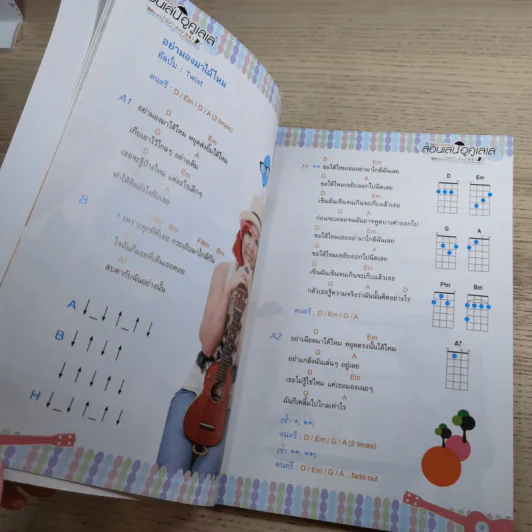 ล้อนเล่นอูคูเลเล่
อย่ามองมาได้ไหม
อัลบั้ม : Twist
ดนตรี : D / Em / G / A (2 times)
A1
D Em
อย่ามองมาได้ไหม หยุดตรงนั้นได้ไหม
G A
เก็บเอาไว้ไกลๆ อย่างเดิม
D Em
เธอจะรู้บ้างไหม แค่อะไรเล็กๆ
G A
ทำให้คิดถึงไปไกลเลย
B
F#m Bm F#m Bm
* เพราะทุกทีที่เธอ กระเถิบมาใกล้กัน
Em
ใจฉันก็ลอยทีเดินเธอคอย
A7
สบตากับฉันอย่างนั้น
A
B
H
ล้อนเล่นอูคูเลเล่
D Em
H ** ขอได้ไหมเธออย่ามาใกล้ฉันเลย
G A
ขอได้ไหมเขยิบออกไปนิดเลย
D Em
เขินฉันเขินจนเกินจะเก็บแล้วเธอ
G A
ก่อนจะเผลอจนฉันอาจพูดบางคำออกไป
D Em
ขอได้ไหมเธออย่ามาใกล้ฉันเลย
G A
ขอได้ไหมเขยิบออกไปนิดเลย
D Em
เขินฉันเขินจนเกินจะเก็บแล้วเธอ
G A D
กลัวเธอรู้ความจริงว่าฉันนั้นคิดอย่างไร
ดนตรี : D / Em / G / A
A2
D Em
อย่าเฉียดมาได้ไหม หยุดตรงนั้นได้ไหม
G A
อย่าแกล้งฉันเล่นๆ อยู่เลย
D Em
เธอไม่รู้ใช่ไหม แค่เธอมองเฉยๆ
G A
ฉันก็เคลิ้มไปไกลเท่าไร
(ซ้ำ *, **)
ดนตรี : D / Em / G / A (2 times)
(ซ้ำ **, **)
ดนตรี : D / Em / G / A ...fade out
D Em
G A
F#m Bm
A7